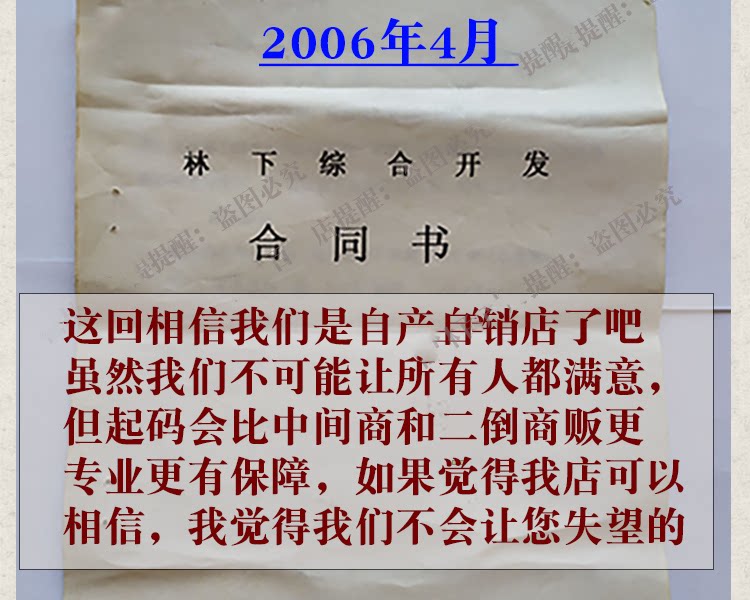 2006年4月
提醒：
提醒：
林下综合开发
盗图必究
店提醒：
盗图必究
合同书
提醒：
提醒：
这回相信我们是自产自销店了吧
虽然我们不可能让所有人都满意，
但起码会比中间商和二倒商贩更
专业更有保障，如果觉得我店可以
相信，我觉得我们不会让您失望的